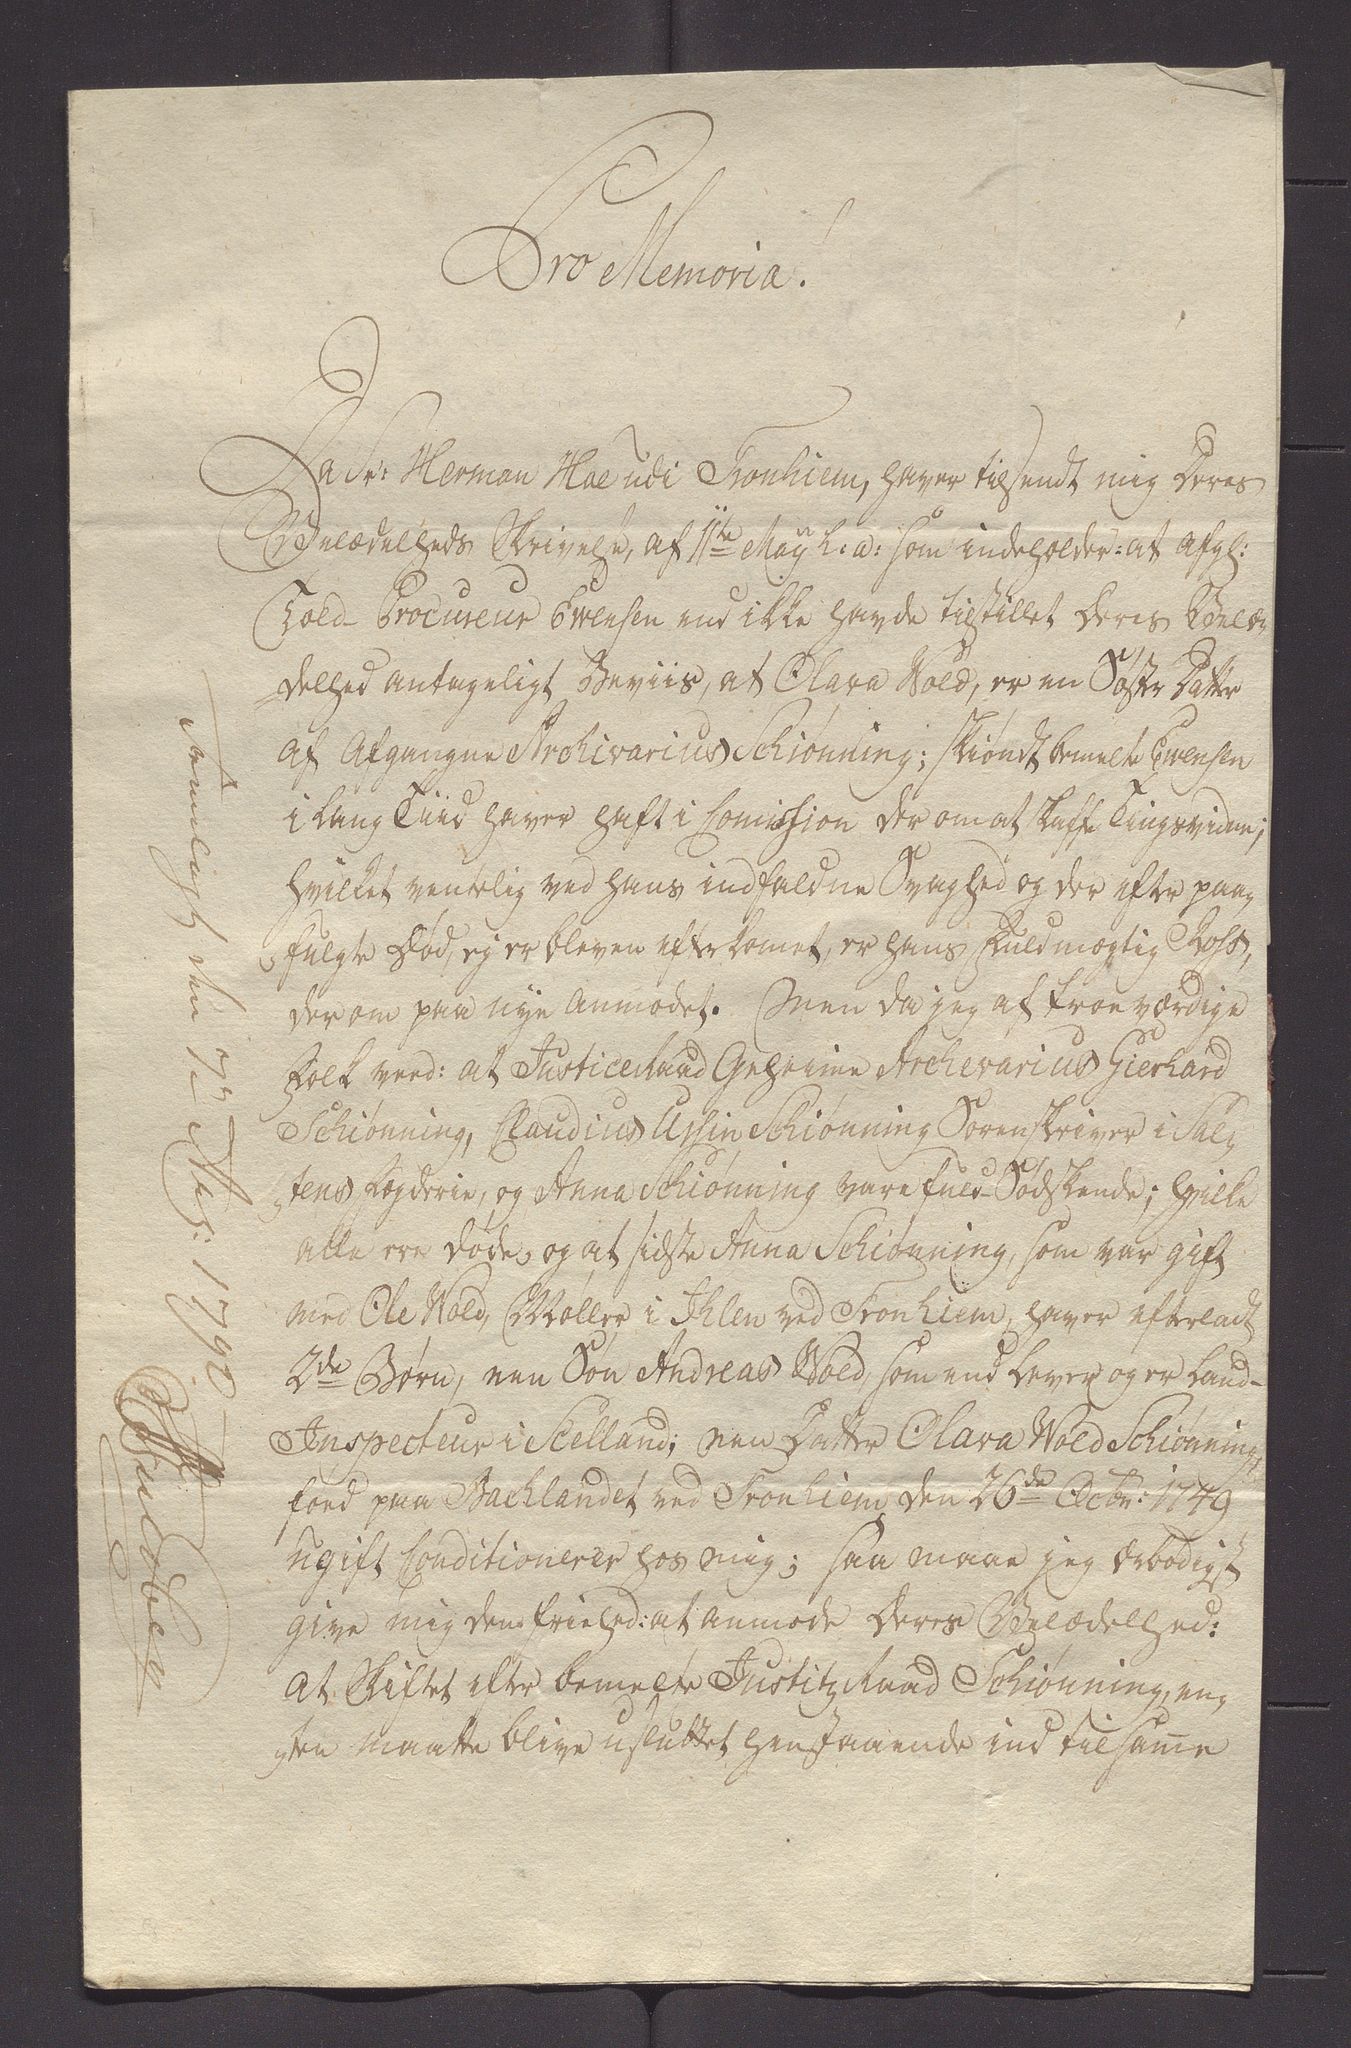 Pro Memoria!
Da Sr: Herman Hoe udi Tronhiem, haver tilsendt mig Deres
Velædelheds Skrivelse, af 11te Maÿ h: a: som indeholder: at afgl:
Told Procureur Evensen end ikke havde tilstillet Deres Velæ-
delhed antageligt Beviis, at Olava Wold, er en Søster Datter
af Afgangne Archivarius Schiønning; skiøndt bemelte Evensen
i lang Tiid haver haft i Comission der om at skaffe Tingsvidne;
hvilket ventelig ved hans indfaldne Svaghed og der efter paa-
fulgte Død, ej er bleven efterkomet, er hans Fuldmægtig Ross,
der om paa nye anmodet. Men da jeg af troeværdige
Folk veed: at Justice Raad Geheime Archevarius Gierhard
Schiønning, Claudius Ursin Schiønning Sorenskriver i Sal-
tens Fogderie, og Anna Schiønning vare fuld Sødskende; hvilke
alle ere døde, og at sidste Anna Schiønning, som var gift
med Ole Wold, Møller i Ihlen ved Tronhiem, haver efterladt
2de Børn, een Søn Andreas Wold, som end lever og er Land-
Inspecteur i Seelland; een Datter Olava Wold Schiønning,
føed paa Bachlandet ved Tronhiem den 26de Octbr: 1749
ugift Conditionerer hos mig; saa maae jeg ærbødigst
give mig den Friehed: at anmode Deres Velædelhed:
at Skiftet efter bemelte Justitz Raad Schiønning, en-
ten maatte blive usluttet henstaaende ind til same
fremlagt den 7de 1790